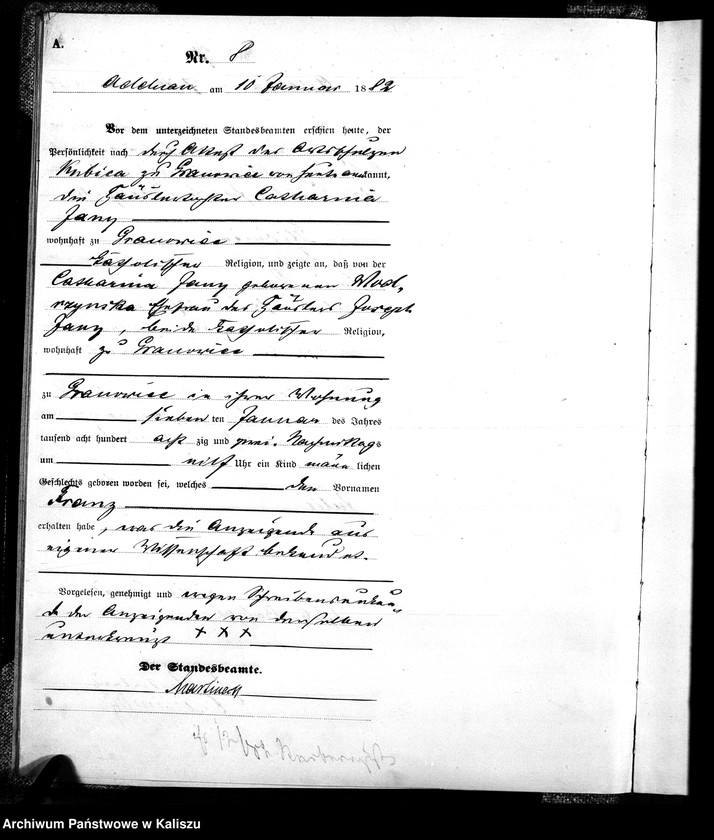 A.
Nr. 8
Adelnau am 10 Januar 1882
Vor dem unterzeichneten Standesbeamten erschien heute, der
Persönlichkeit nach durch Attest des Ortsschulzen
Kubica zu Granowiec von heute anerkannt,
die Häuslertochter Catharina
Jany
wohnhaft zu Granowiec
katholischer Religion, und zeigte an, daß von der
Catharina Jany geborenen Wod-
rzynska Ehefrau des Häuslers Joseph
Jany, beide katholischer Religion,
wohnhaft zu Granowiec
zu Granowiec in ihrer Wohnung
am sieben ten Januar des Jahres
tausend acht hundert acht zig und zwei Nachmittags
um elf Uhr ein Kind männ lichen
Geschlechts geboren worden sei, welches den Vornamen
Franz
erhalten habe, was die Anzeigende aus
eigener Wissenschaft bekundet.
Vorgelesen, genehmigt und wegen Schreibensunkun-
de der Anzeigenden von derselben
unterkreuzt + + +
Der Standesbeamte.
Archiwum Państwowe w Kaliszu